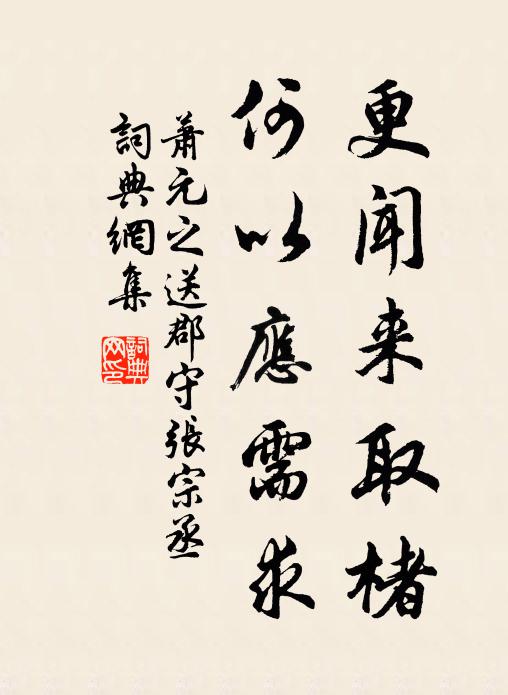 更闻来取楮
何以應需求
萧元之送郡守張宗丞
詞典網集
詞典網印